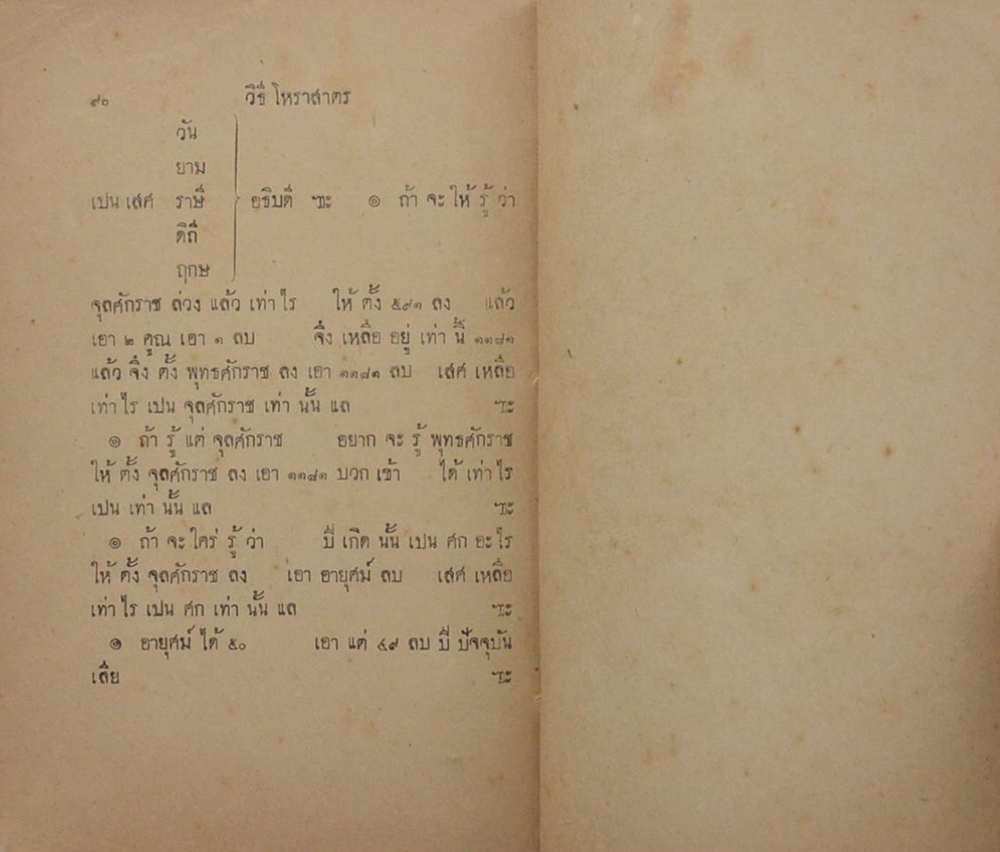 ๙๐ วิธี โหราสาตร
วัน
ยาม
เปน เส่ศ ราษี อธิบดี ฯะ ๏ ถ้า จะ ให้ รู้ ว่า
ดิถี
ฤกษ
จุลศักราช ล่วง แล้ว เท่า ไร ให้ ตั้ง ๕๙๑ ลง แล้ว
เอา ๒ คูณ เอา ๑ ลบ จึ่ง เหลือ อยู่ เท่า นี้ ๑๑๘๑
แล้ว จึ่ง ตั้ง พุทธศักราช ลง เอา ๑๑๘๑ ลบ เส่ศ เหลือ
เท่า ไร เปน จุลศักราช เท่า นั้น แล ฯะ
๏ ถ้า รู้ แต่ จุลศักราช อยาก จะ รู้ พุทธศักราช
ให้ ตั้ง จุลศักราช ลง เอา ๑๑๘๑ บวก เข้า ได้ เท่า ไร
เปน เท่า นั้น แล ฯะ
๏ ถ้า จะ ใคร่ รู้ ว่า ปี เกิด นั้น เปน ศก อะ ไร
ให้ ตั้ง จุลศักราช ลง เอา อายุศม์ ลบ เส่ศ เหลือ
เท่า ไร เปน ศก เท่า นั้น แล ฯะ
๏ อายุศม์ ได้ ๕๐ เอา แต่ ๔๙ ลบ ปี ปัจจุบัน
เสีย ฯะ